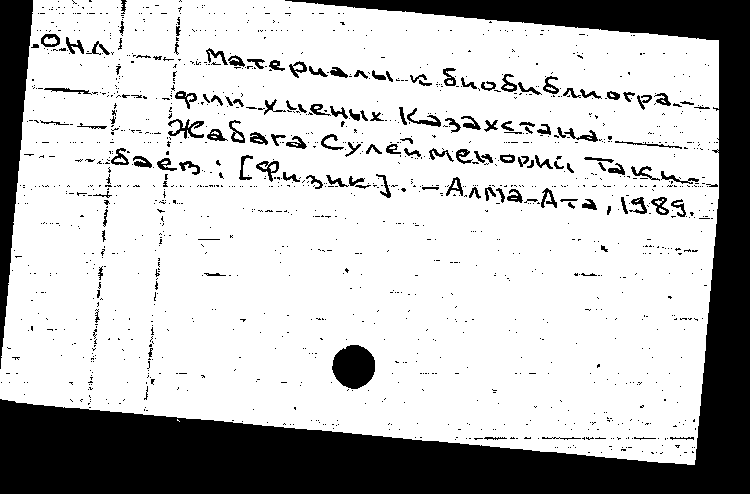 .ОНЛ
Материалы к биобиблиогра-
фии ученых Казахстана.
Жабага Сулейменович Таки-
баев : [Физик]. - Алма-Ата, 1989.